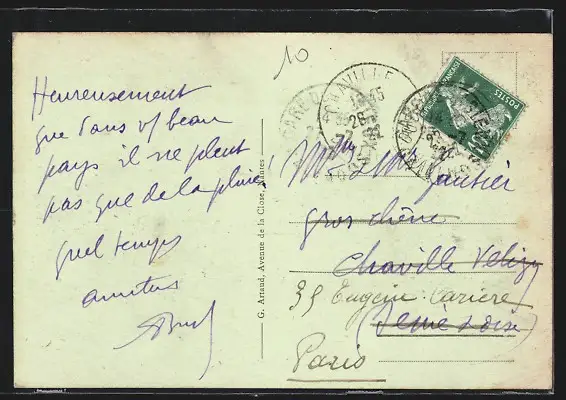 10
Heureusement
que dans c/ beau
pays il ne pleut
pas que de la pluie!
quel temps
amitiés
G. Artaud, Avenue de la Close, Nantes
CHAVILLE
GARE D
POSTES
Gautier
gros chêne
Chaville Velizy
35 Eugène Carière
(Seine & Oise)
Paris